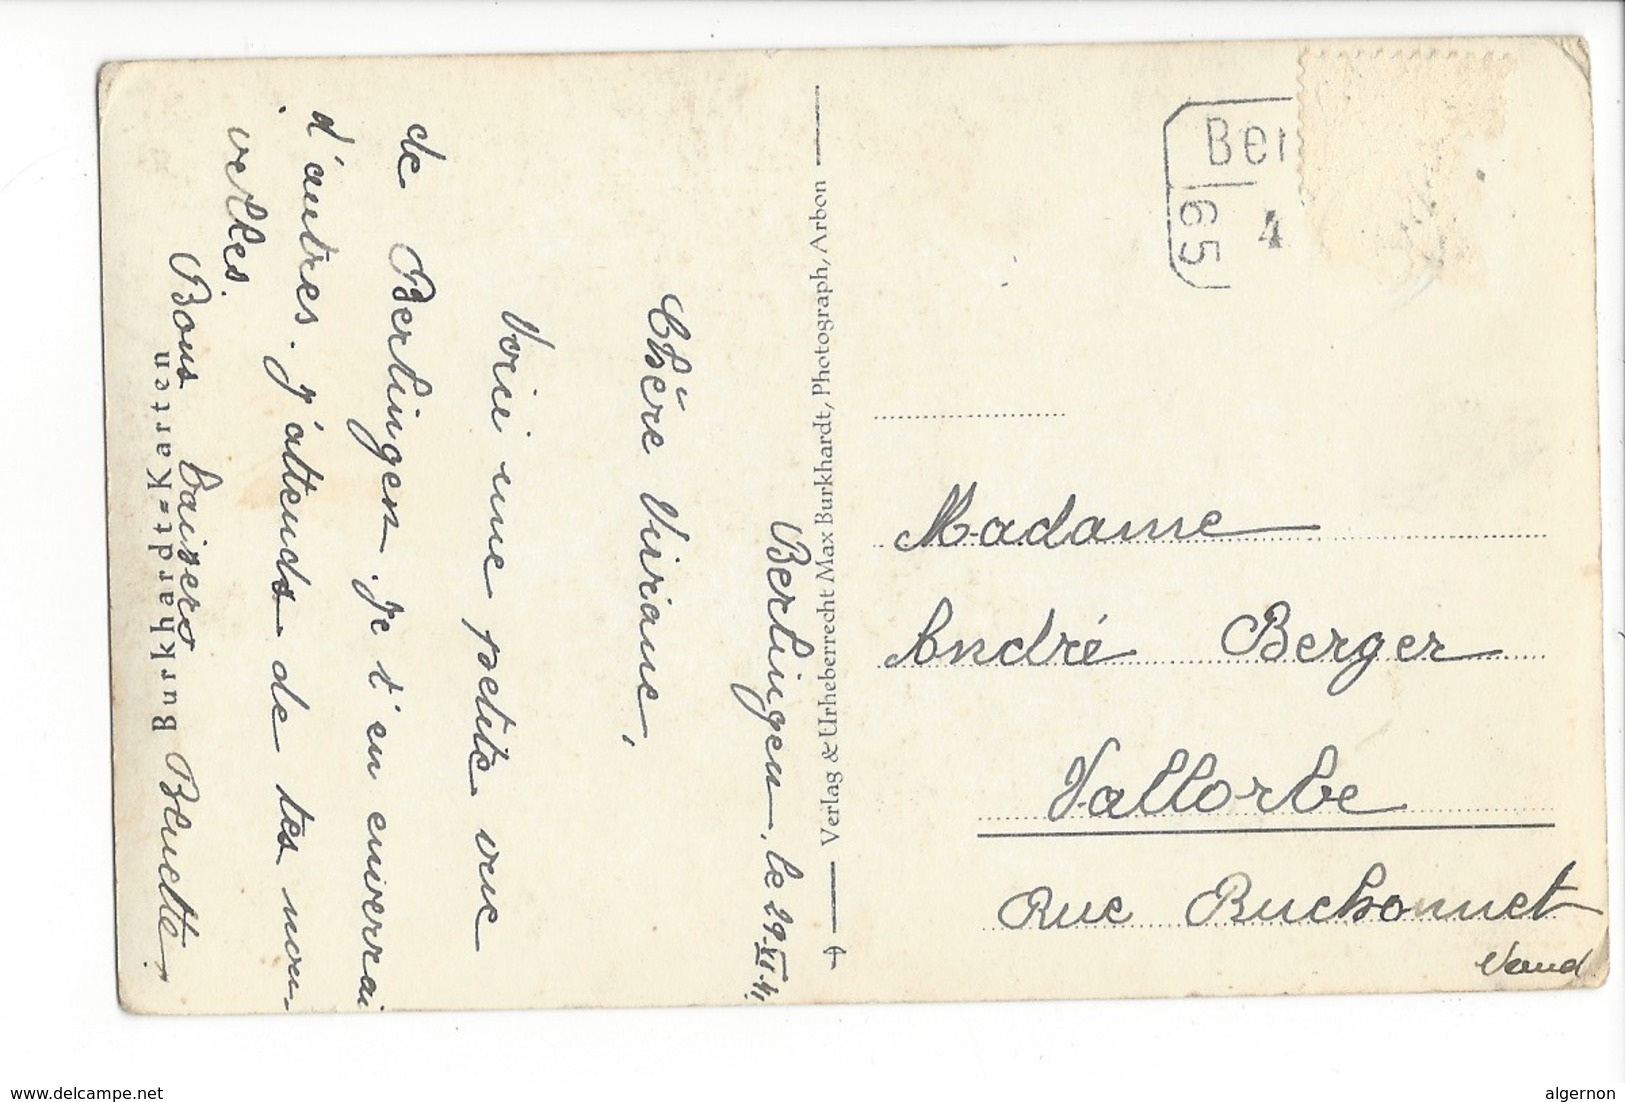 Berlingen, le 29.VI.41
Chère Viviane,
Voici une petite vue
de Berlingen. Je t'en enverrai
d'autres. J'attends de tes nou-
velles.
Bons baisers
Bluette.
Burkhardt=Karten
Verlag & Urheberrecht Max Burkhardt, Photograph, Arbon
65
4
Madame
André Berger
Vallorbe
Rue Buchonnet
Vaud
www.delcampe.net
algernon